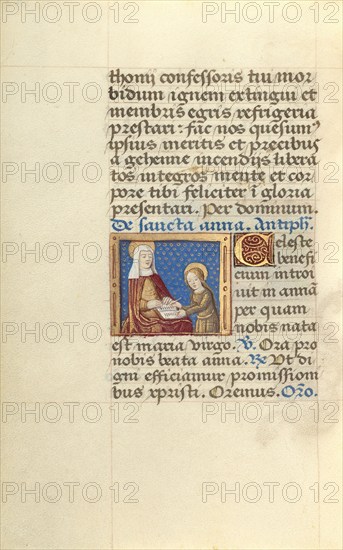 thonii confessoris tui mor
bidum ignem extingui et
membris egris refrigeria
prestari: fac nos quesum'
ipsius meritis et precibus
a gehenne incendiis libera
tos integros mente et cor
pore tibi feliciter i gloria
presentari. Per dominum.
De sancta anna. Antiph.
Celeste
benefi
cium introi
uit in annā
per quam
nobis nata
est maria virgo. V. Ora pro
nobis beata anna. Re Ut di
gni efficiamur promission
bus xpristi. Oremus. Oro.
PHOTO12